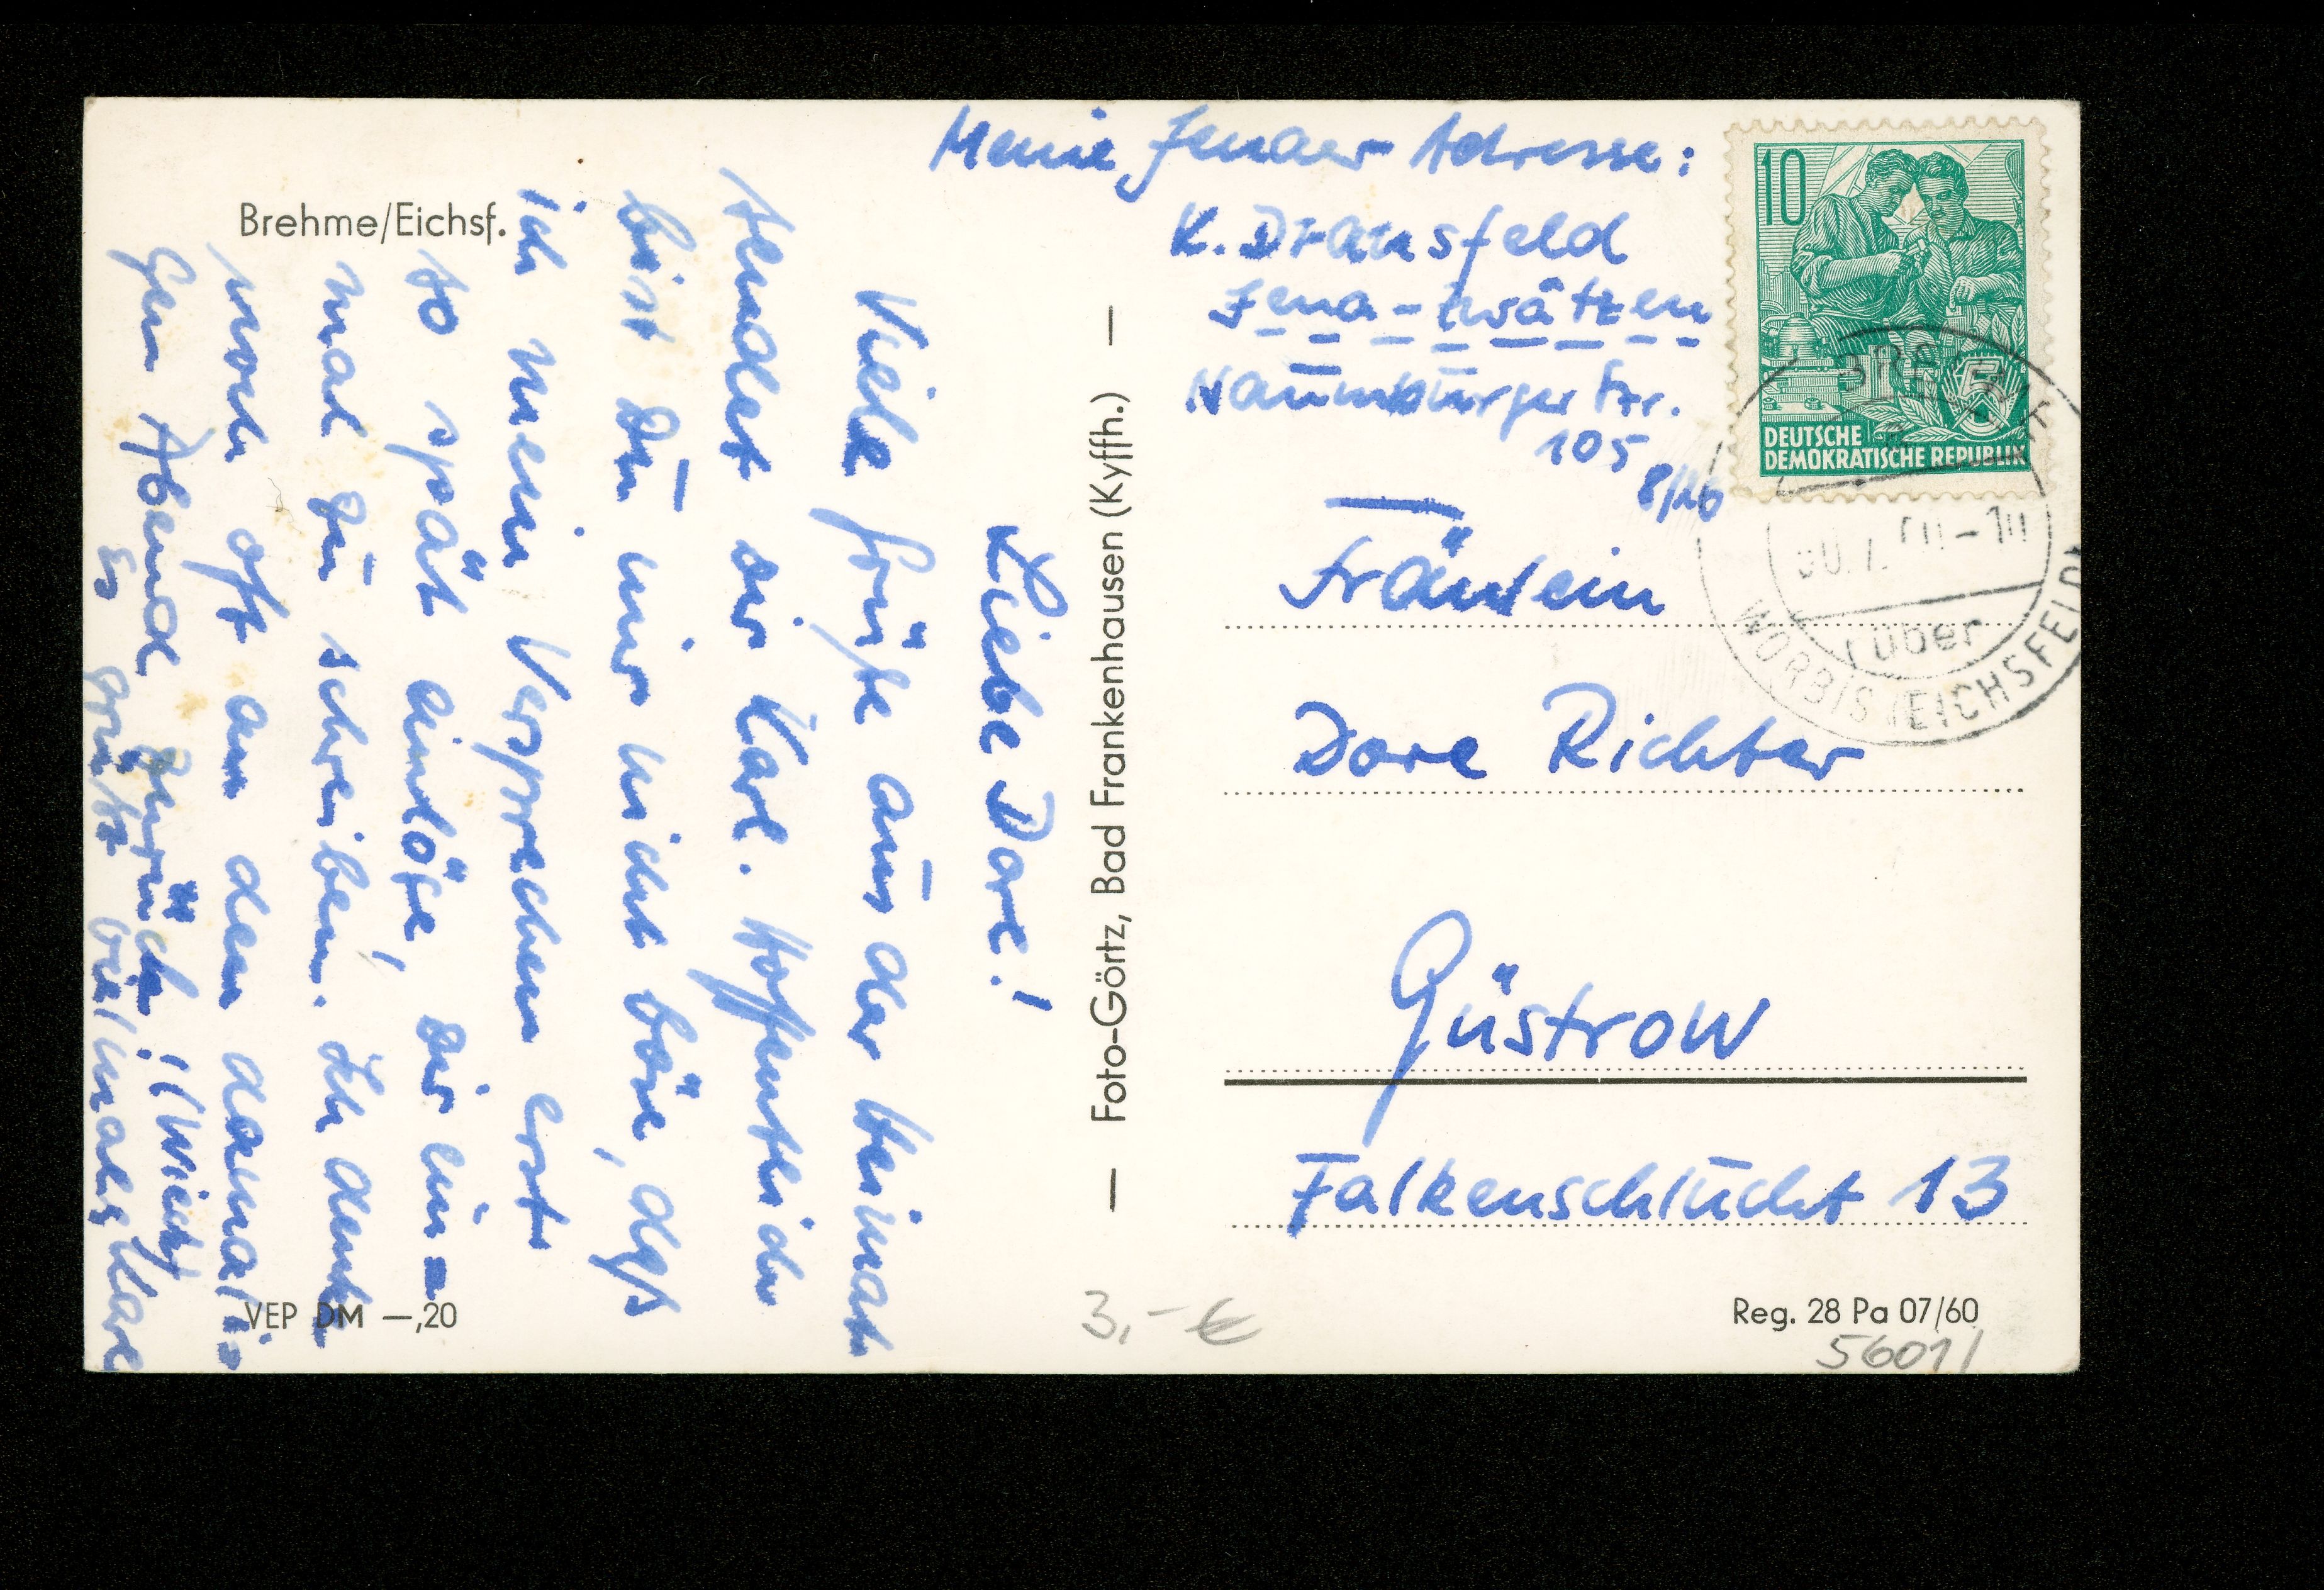 Brehme/Eichsf.
Liebe Dore!
Viele Grüße aus der Heimat
sendet dir Karl. Hoffentlich
bist Du mir nicht böse, daß
ich mein Versprechen erst
so spät einlöse, dir ein=
mal zu schreiben. Ich denke
noch oft an den damali=
gen Abend zurück.
So grüßt vielmals Karl
VEP DM —,20
— Foto-Görtz, Bad Frankenhausen (Kyffh.) —
Meine Jenaer Adresse:
K. Dransfeld
Jena-Zwätzen
Naumburger Str.
105
8/16
10
5
DEUTSCHE
DEMOKRATISCHE REPUBLIK
über
WORBIS (EICHSFELD)
Fräulein
Dore Richter
Güstrow
Falkenschlucht 13
Reg. 28 Pa 07/60
3,- €
5601/